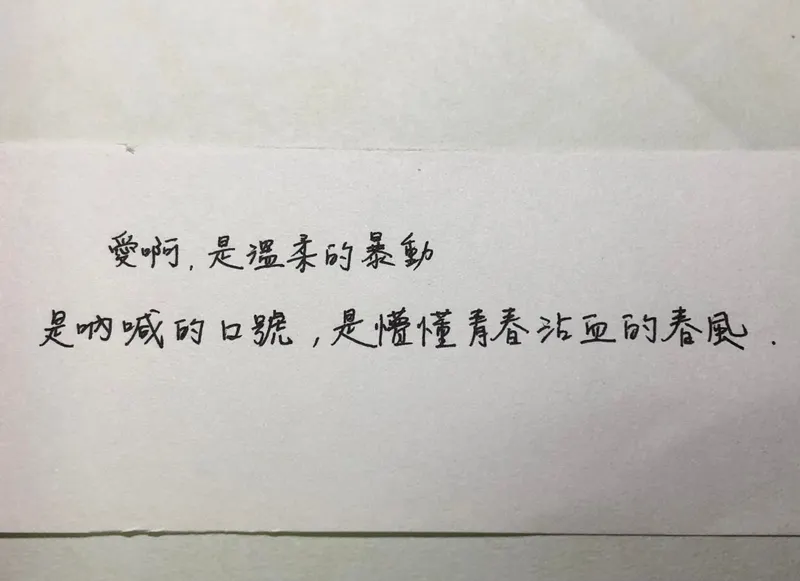 愛啊,是溫柔的暴動
是吶喊的口號,是懵懂青春沾血的春風.